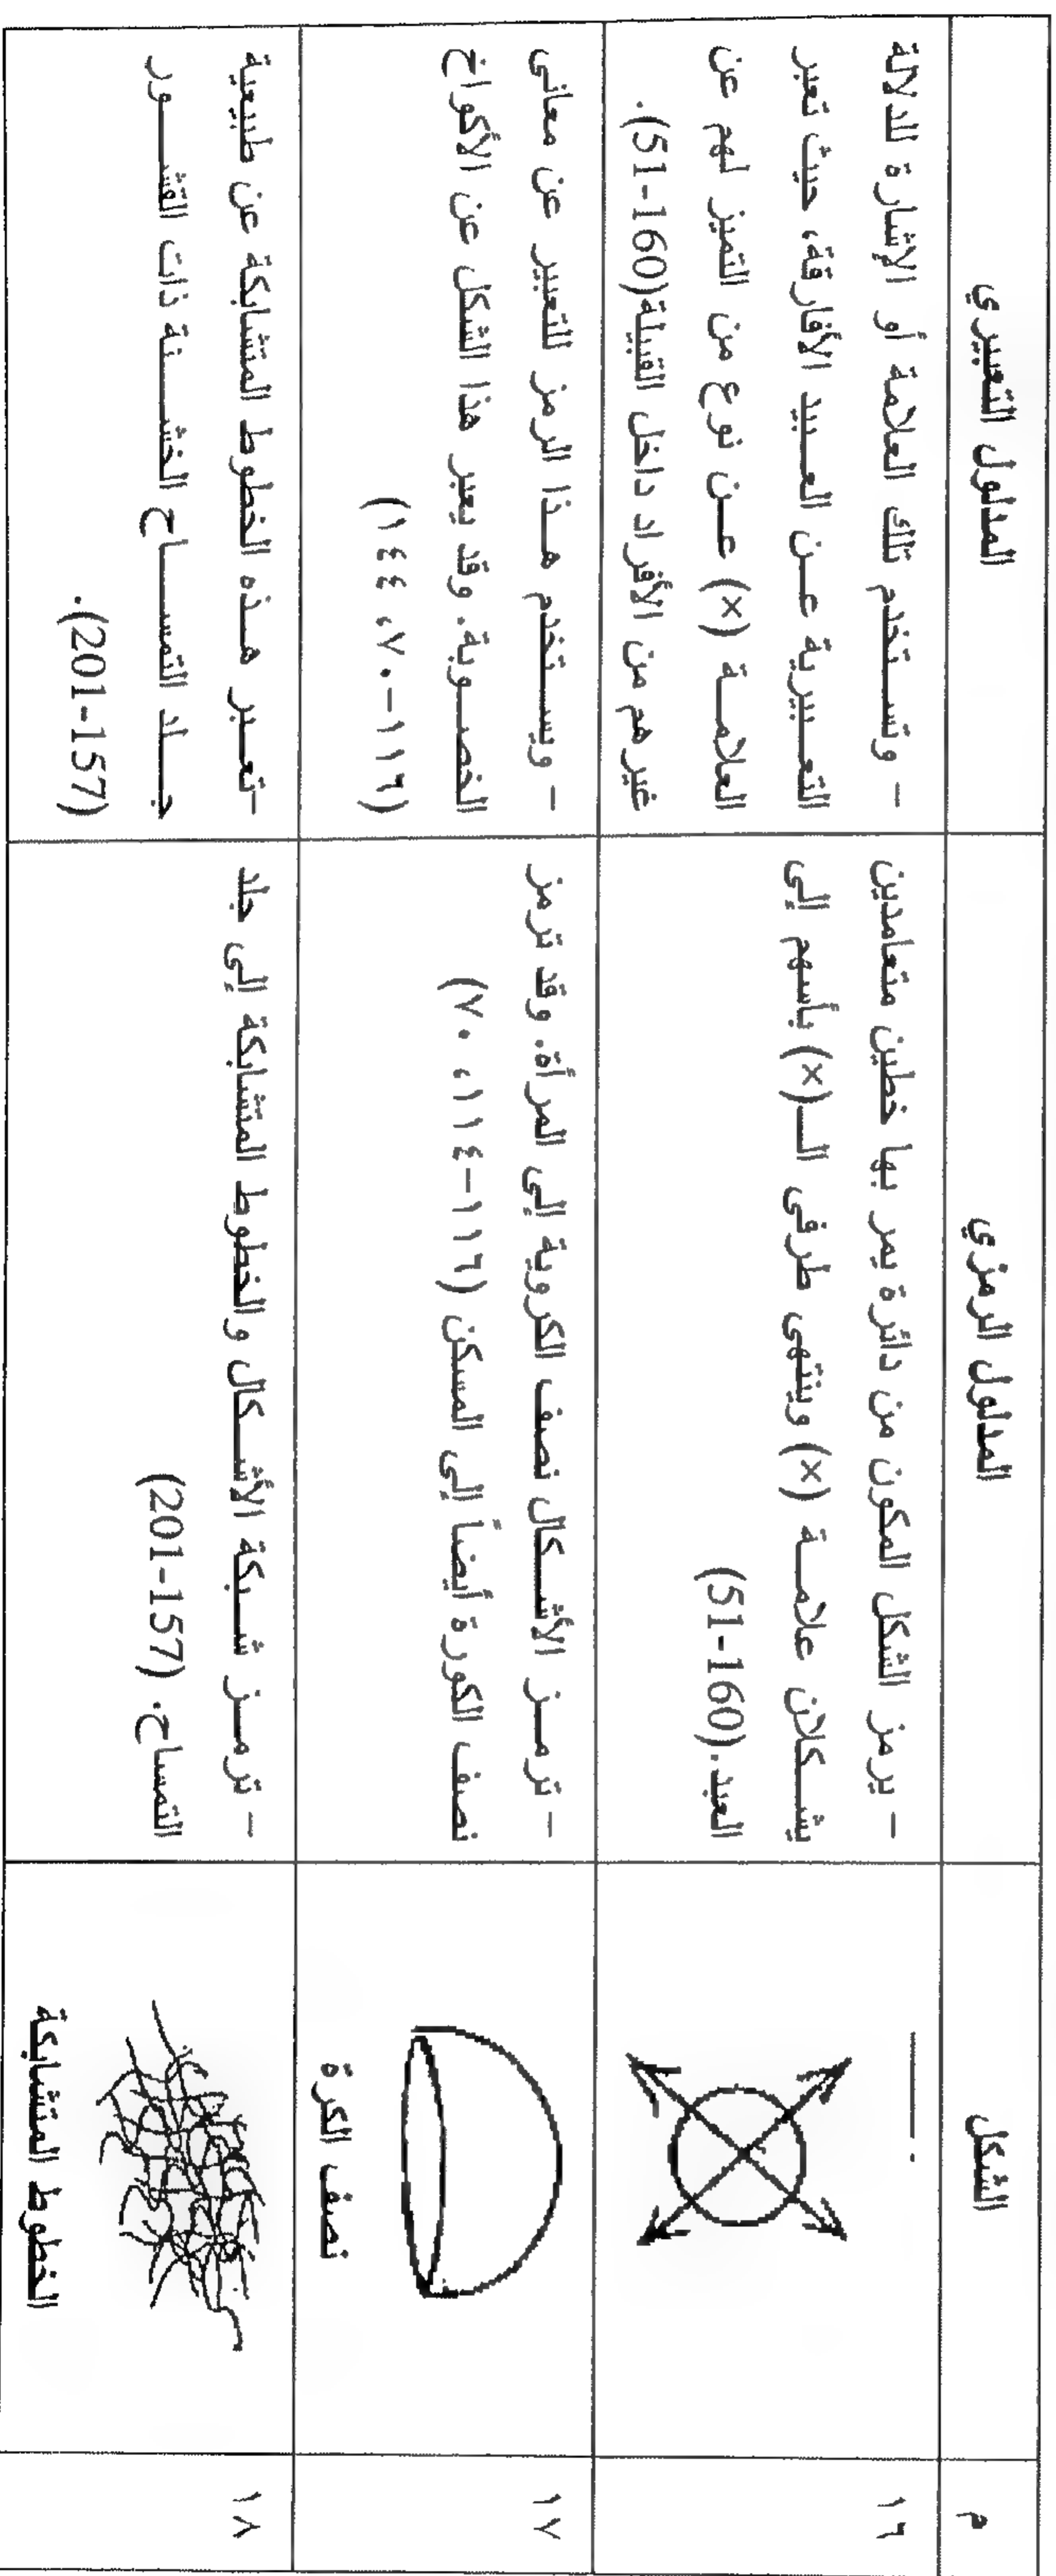 م
الشكل
المدلول الرمزي
المدلول التعبيري
١٦
- يرمز الشكل المكون من دائرة يمر بها خطين متعامدين
يشكلان علامة (×) وينتهى طرفى الـ(×) بأسهم إلى
العبد.(51-160)
- وتستخدم تلك العلامة أو الإشارة للدلالة
التعبيرية عن العبيد الأفارقة، حيث تعبر
العلامة (×) عن نوع من التميز لهم عن
غيرهم من الأفراد داخل القبيلة(51-160).
١٧
نصف الكرة
- ترمز الأشكال نصف الكروية إلى المرأة. وقد ترمز
نصف الكورة أيضاً إلى المسكن (١١٦-١١٤، ٧٠)
- ويستخدم هذا الرمز للتعبير عن معانى
الخصوبة. وقد يعبر هذا الشكل عن الأكواخ
(١١٦-٧٠، ١٤٤)
١٨
الخطوط المتشابكة
- ترمز شبكة الأشكال والخطوط المتشابكة إلى جلد
التمساح. (201-157)
-تعبر هذه الخطوط المتشابكة عن طبيعية
جلد التمساح الخشنة ذات القشور
(201-157).